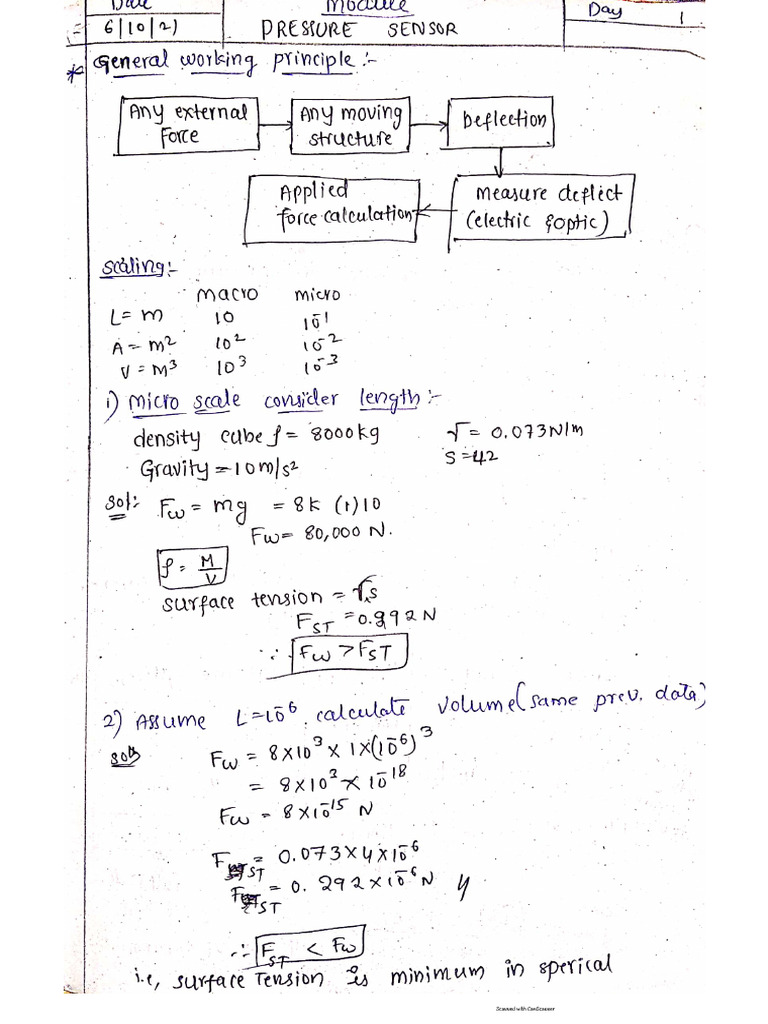 Date
Module
Day 1
6/10/21
PRESSURE SENSOR
* General working principle :-
Any external Force
Any moving structure
Deflection
Applied force calculation
measure deflect (electric & optic)
scaling:-
macro micro
L = m 10 10⁻¹
A = m² 10² 10⁻²
V = m³ 10³ 10⁻³
i) micro scale consider length :-
density cube ρ = 8000kg √ = 0.073N/m
Gravity = 10m/s² S = 42
Sol: Fw = mg = 8K (1)10
Fw = 80,000 N.
ρ = M/V
surface tension = √s
F_ST = 0.292 N
∵ Fw > F_ST
2) Assume L = 10⁻⁶, calculate volume (same prev. data)
Soln Fw = 8×10³ × 1×(10⁻⁶)³
= 8×10³ × 10⁻¹⁸
Fw = 8×10⁻¹⁵ N
F_ST = 0.073×4×10⁻⁶
F_ST = 0.292×10⁻⁶ N //
∴ F_ST < Fw
i.e, surface Tension is minimum in sperical
Scanned with CamScanner